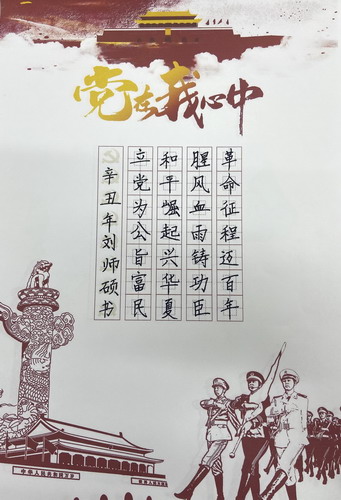 党在我心中
革命征程迈百年
腥风血雨铸功臣
和平崛起兴华夏
立党为公旨富民
辛丑年刘师硕书